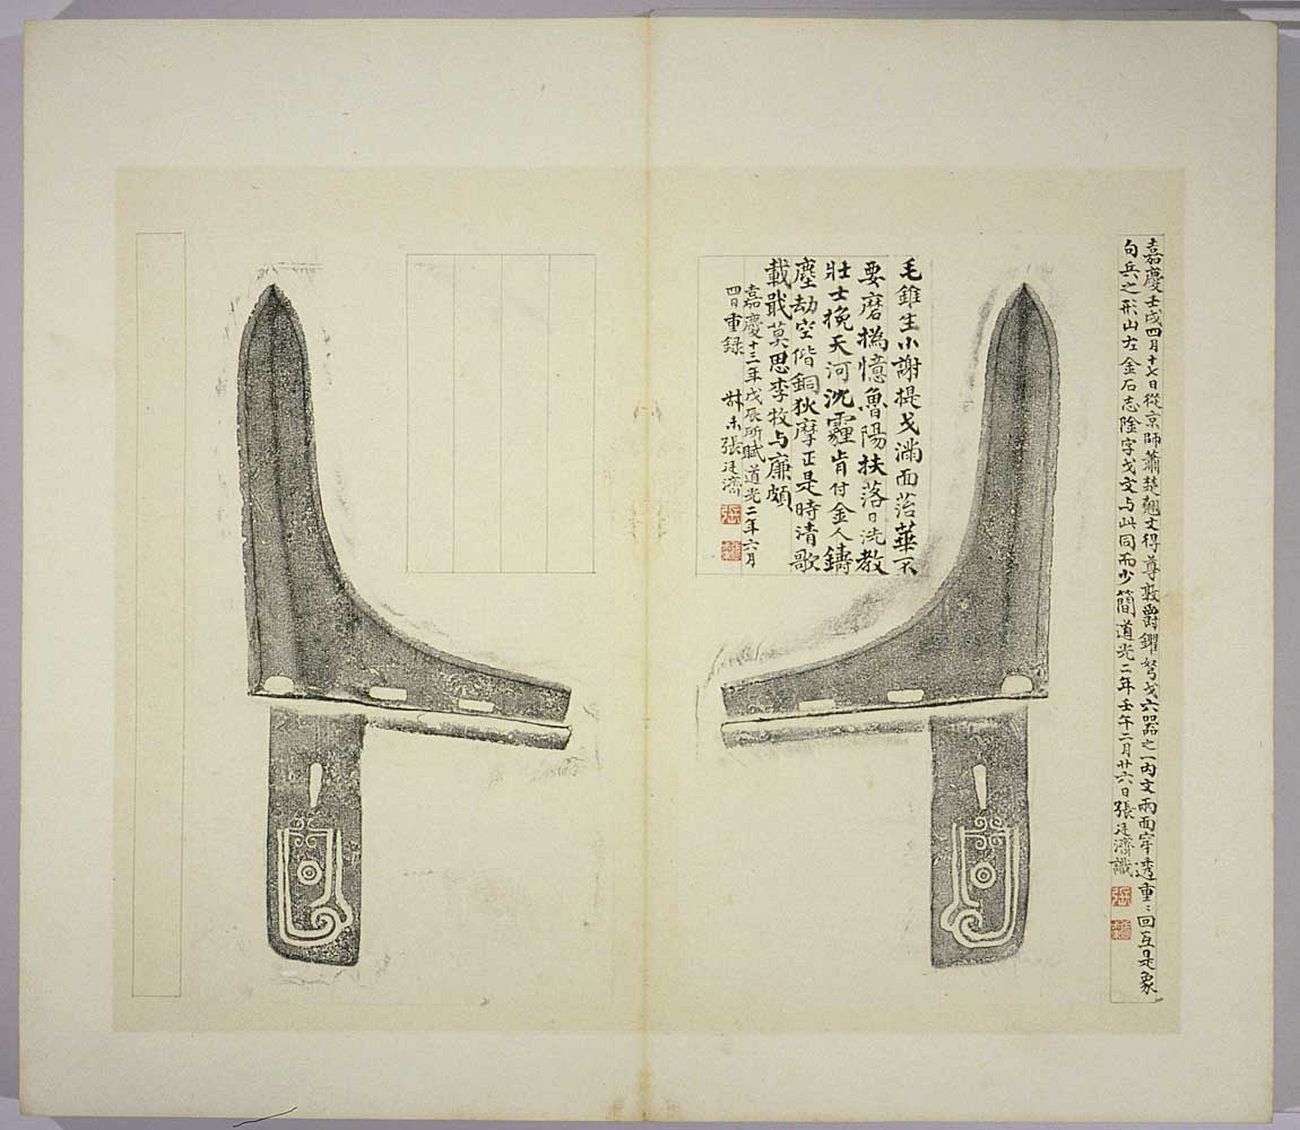 嘉慶壬戌四月十七日從京師蕭楚翹文得尊敦爵鑵弩戈六器之一內文兩面穿透重〻回互是象
句兵之形山左金石志陰字戈文与此同而少簡道光二年壬午二月廿六日張廷濟識
毛錐生小謝提戈滿面苔華不
要磨撝憶魯陽扶落日洗教
壯士挽天河沈霾肯付金人鑄
塵劫空偕銅狄摩正是時清歌
載戢莫思李牧与廉頗
嘉慶十三年戊辰所賦道光二年六月
四日重録 叔未張廷濟